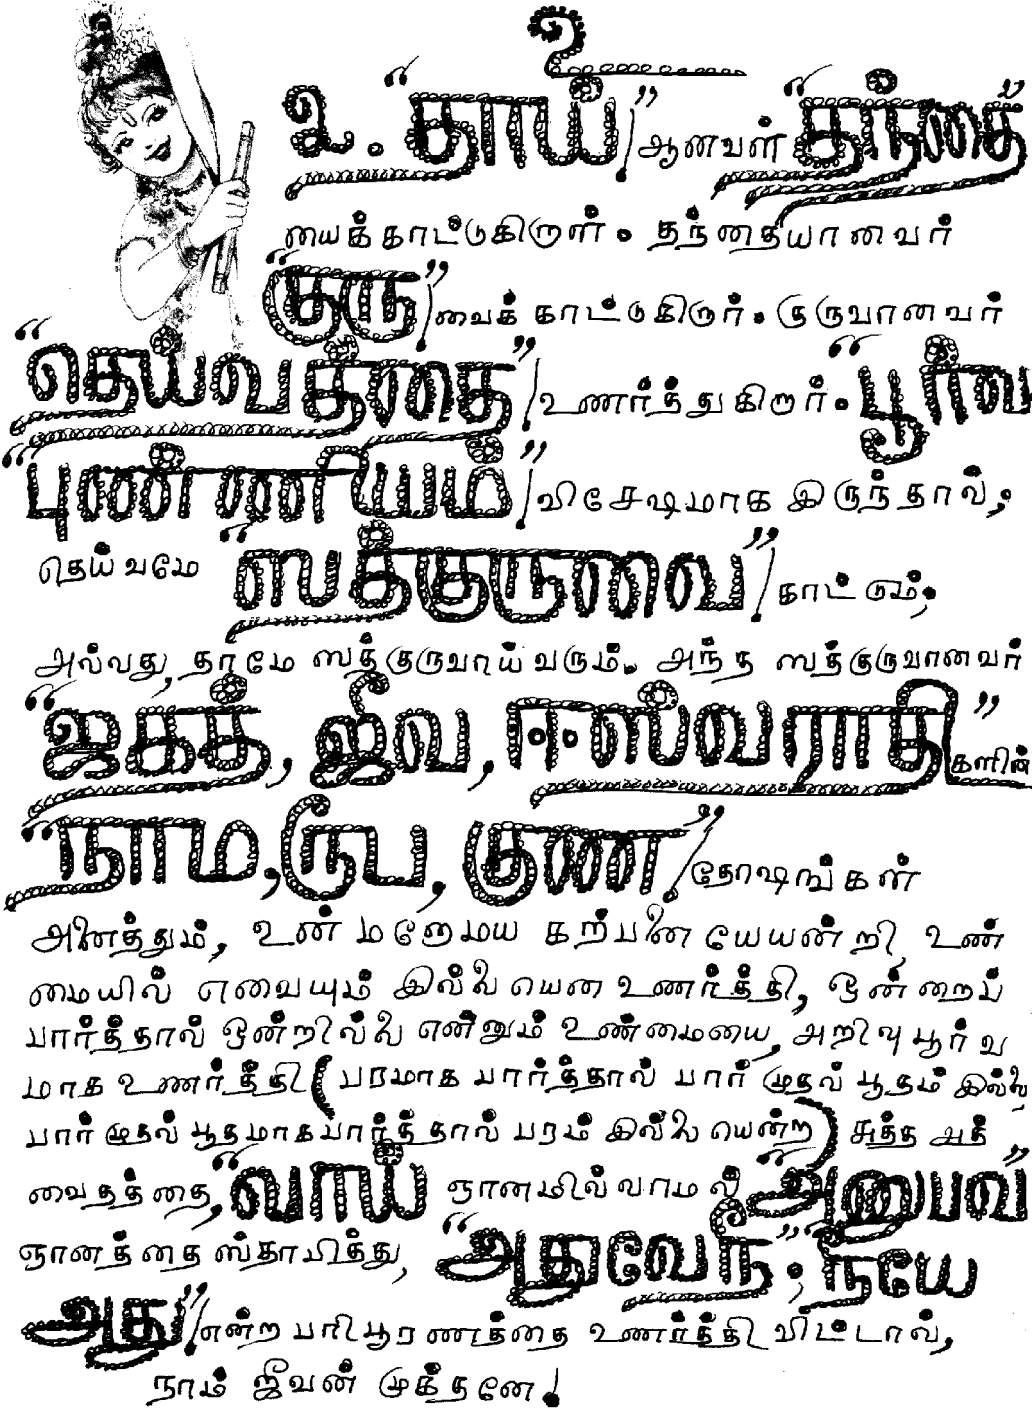 உ
உ. "தாய்" ஆனவள் "தந்தை"
யைக் காட்டுகிறாள். தந்தையானவர்
"குரு" வைக் காட்டுகிறார். குருவானவர்
"தெய்வத்தை" உணர்த்துகிறார். "பூர்வ
புண்ணியம்" விசேஷமாக இருந்தால்,
தெய்வமே "ஸத்குருவை" காட்டும்,
அல்லது, தாமே ஸத்குருவாய் வரும். அந்த ஸத்குருவானவர்
"ஜகத், ஜீவ, ஈஸ்வராதி" களின்
"நாம, ரூப, குண" தோஷங்கள்
அனைத்தும், உன் மனோமய கற்பனை யேயன்றி, உண்
மையில் எவையும் இல்லை யென உணர்த்தி, ஒன்றைப்
பார்த்தால் ஒன்றில்லை என்னும் உண்மையை, அறிவு பூர்வ
மாக உணர்த்தி (பரமாக பார்த்தால் பார் முதல் பூதம் இல்லை,
பார் முதல் பூதமாகபார்த்தால் பரம் இல்லை யென்ற) சுத்த அத்
வைதத்தை, "வாய் ஞானமில்லாமல் "அபைவ"
ஞானத்தை ஸ்தாபித்து, "அதுவேநீ", "நீயே
அது" என்ற பரிபூரணத்தை உணர்த்தி விட்டால்,
நாம் ஜீவன் முக்தனே!